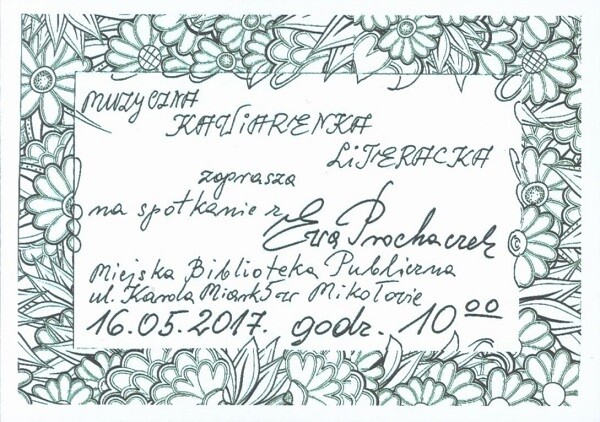 MUZYCZNA
KAWIARENKA
LITERACKA
zaprasza
na spotkanie z Ewą Prochaczek
Miejska Biblioteka Publiczna
ul. Karola Miarki 5 w Mikołowie
16.05.2017. godz. 10⁰⁰